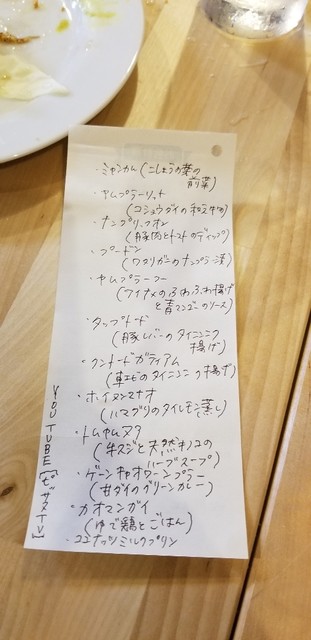 ・ミャンカム(こしょうの葉の
前菜)
・ヤムプラーリット
(コショウダイの和え物)
・ナンプリックオン
(豚肉とトマトのディップ)
・プードン
(ワタリガニのナンプラー漬)
・ヤムプラーフー
(アイナメのふわふわ揚げ
と青マンゴーのソース)
・タップトード
(豚レバーのタイニンニク
揚げ)
・クントードガティアム
(車エビのタイニンニク揚げ)
・ホイヌンマナオ
(ハマグリのタイレモン蒸し)
・トムヤムヌア
(牛スジと天然キノコの
ハーブスープ)
・ゲーンキャオワーンプラー
(甘ダイのグリーンカレー)
・カオマンガイ
(ゆで鶏とごはん)
・ココナッツミルクプリン
YOUTUBE[ピザヌTV]